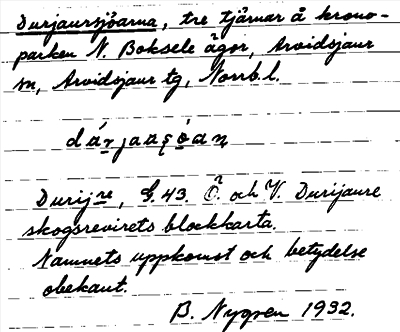 Durjaursjöarna, tre tjärnar å krono-
parken N. Boksele ägor, Arvidsjaur
sn, Arvidsjaur tg, Norrb. l.
Durijre, G. 43. Ö. och V. Durijaure
skogsrevirets blockkarta.
Namnets uppkomst och betydelse
obekant.
B. Nygren 1932.